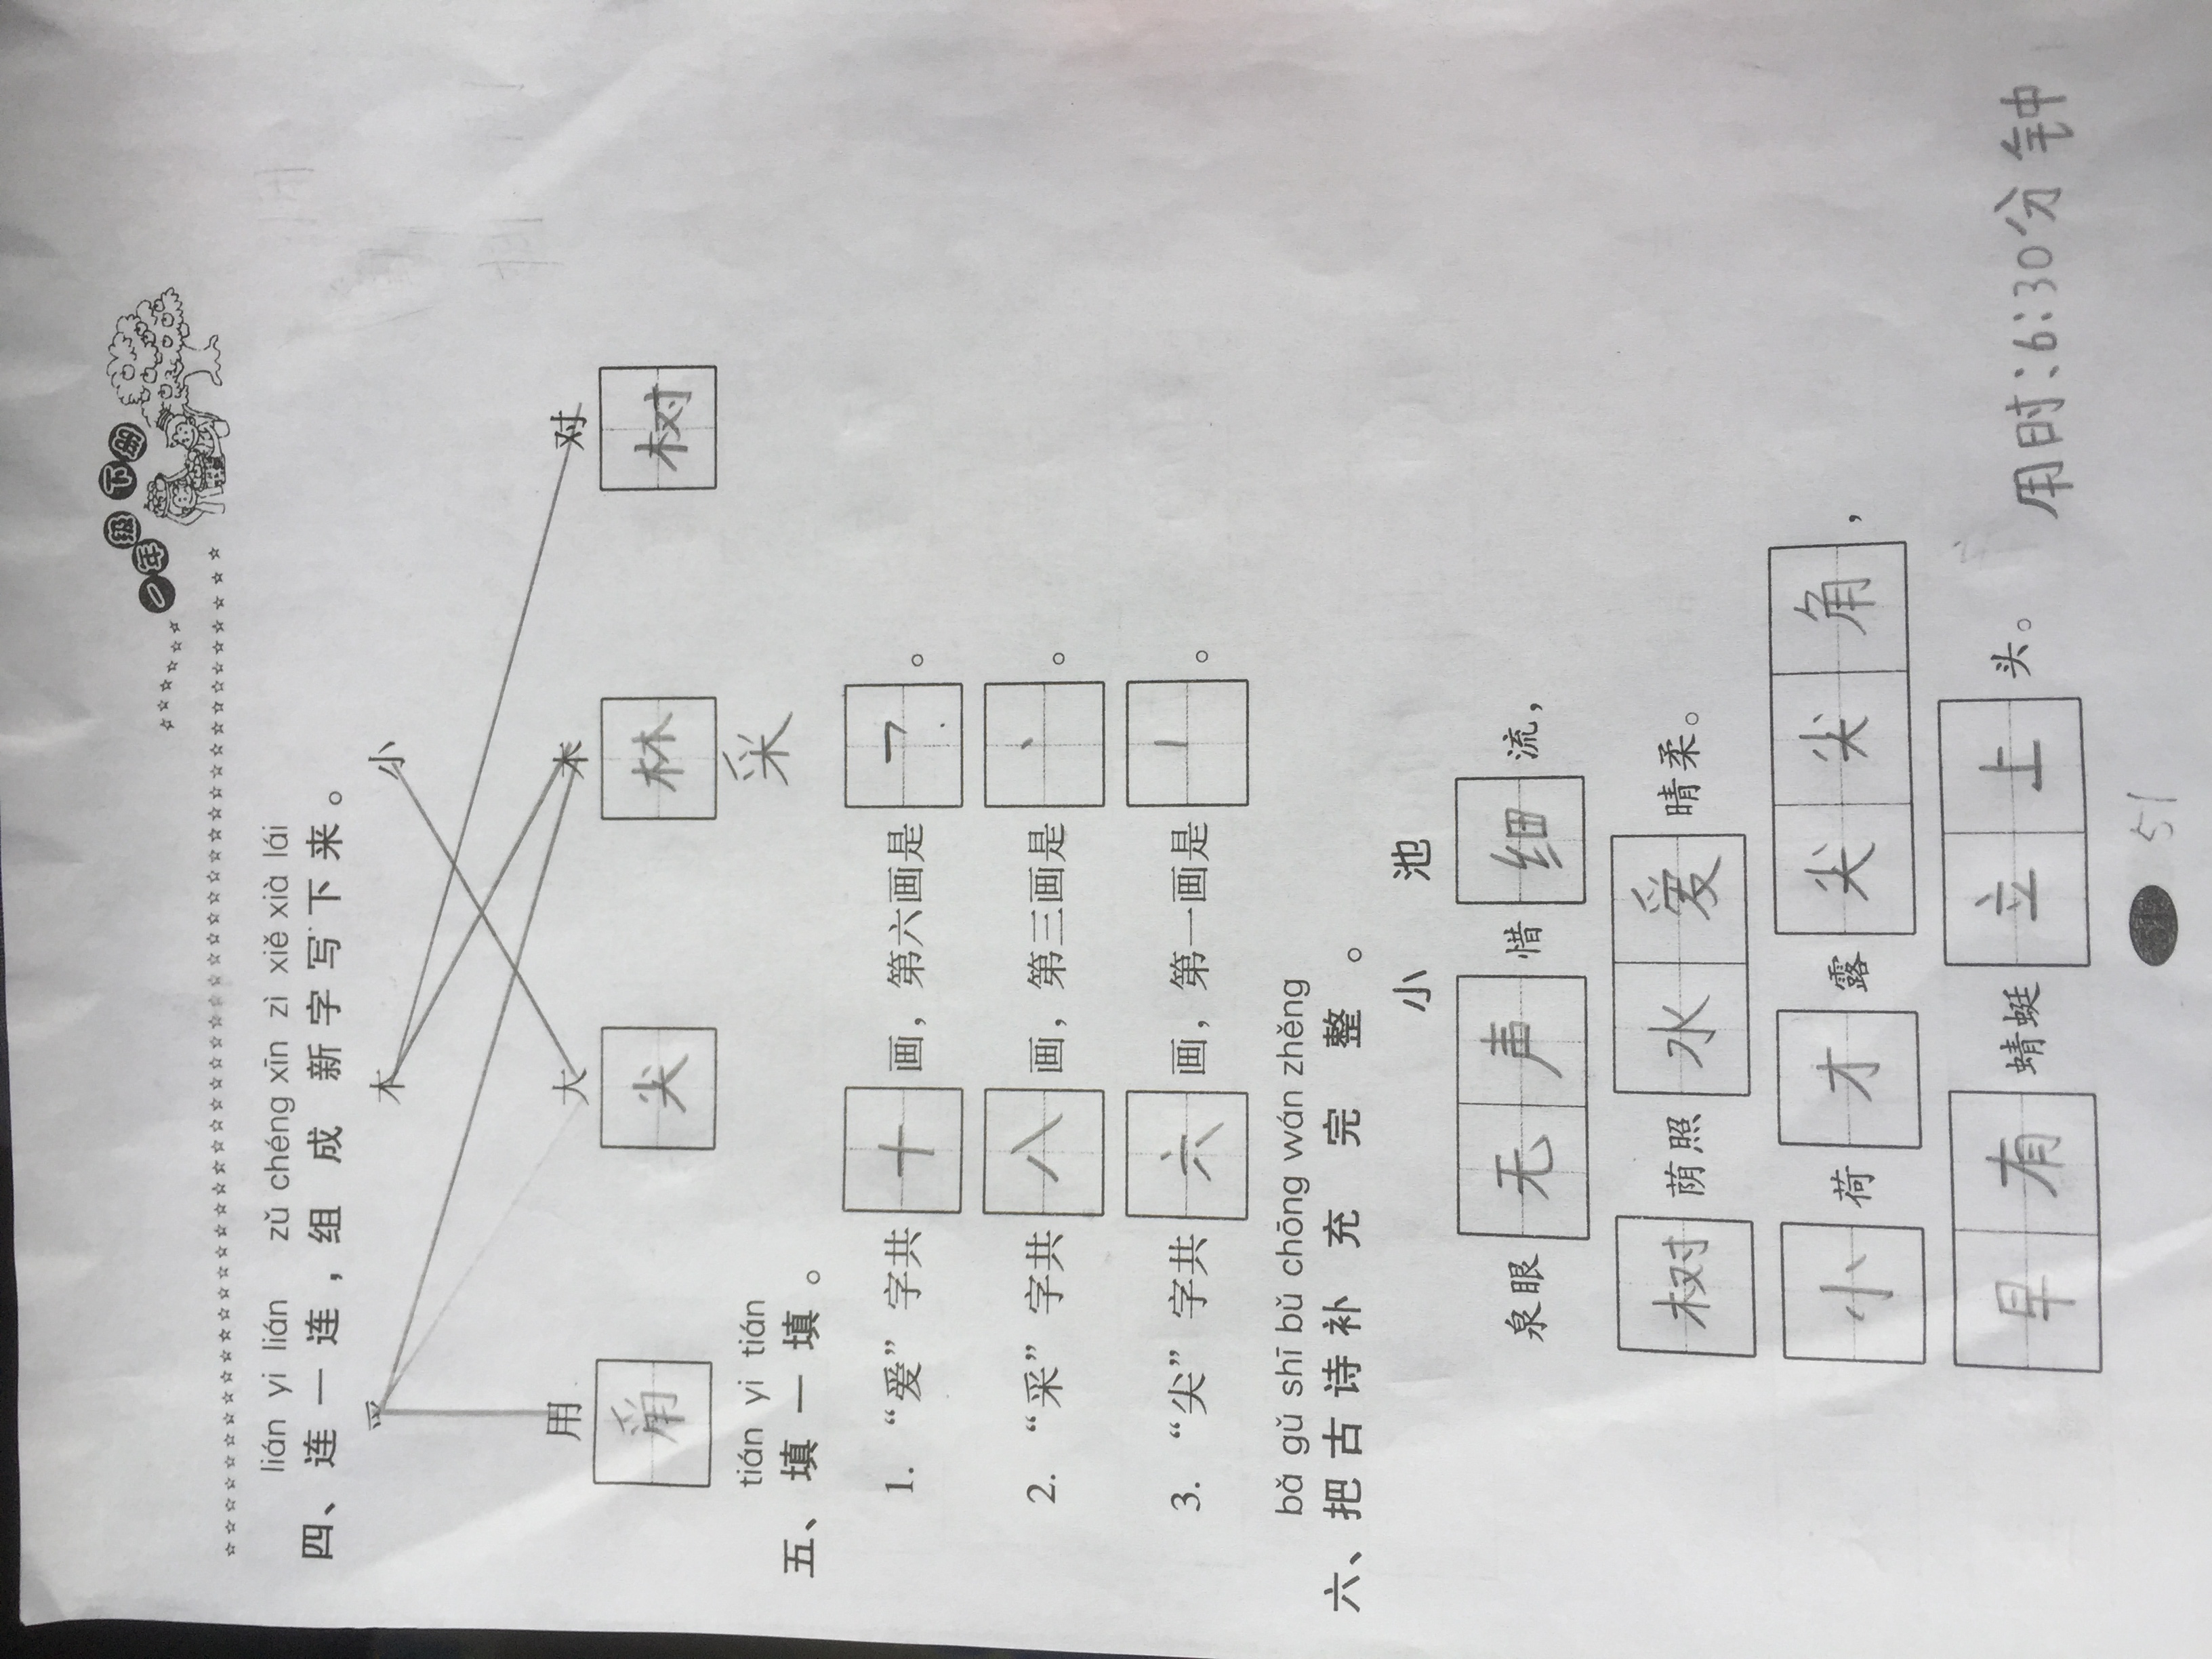 一年级下册
lián yi lián zǔ chéng xīn zì xiě xià lái
四、连一连，组成新字写下来。
爫 木 小
用 大 木 对
尖 林 树
采
tián yi tián
五、填一填。
1. “爱”字共十画，第六画是㇖。
2. “采”字共八画，第三画是丶。
3. “尖”字共六画，第一画是丨。
bǎ gǔ shī bǔ chōng wán zhěng
六、把古诗补充完整。
小池
泉眼无声惜细流，
树荫照水爱晴柔。
小荷才露尖尖角，
早有蜻蜓立上头。
用时：6：30分钟
51